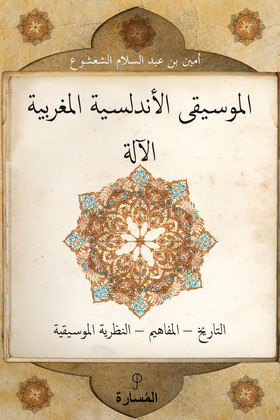 أمين بن عبد السلام الشعشوع
الموسيقى الأندلسية المغربية
الآلة
التاريخ – المفاهيم – النظرية الموسيقية
المُسارة